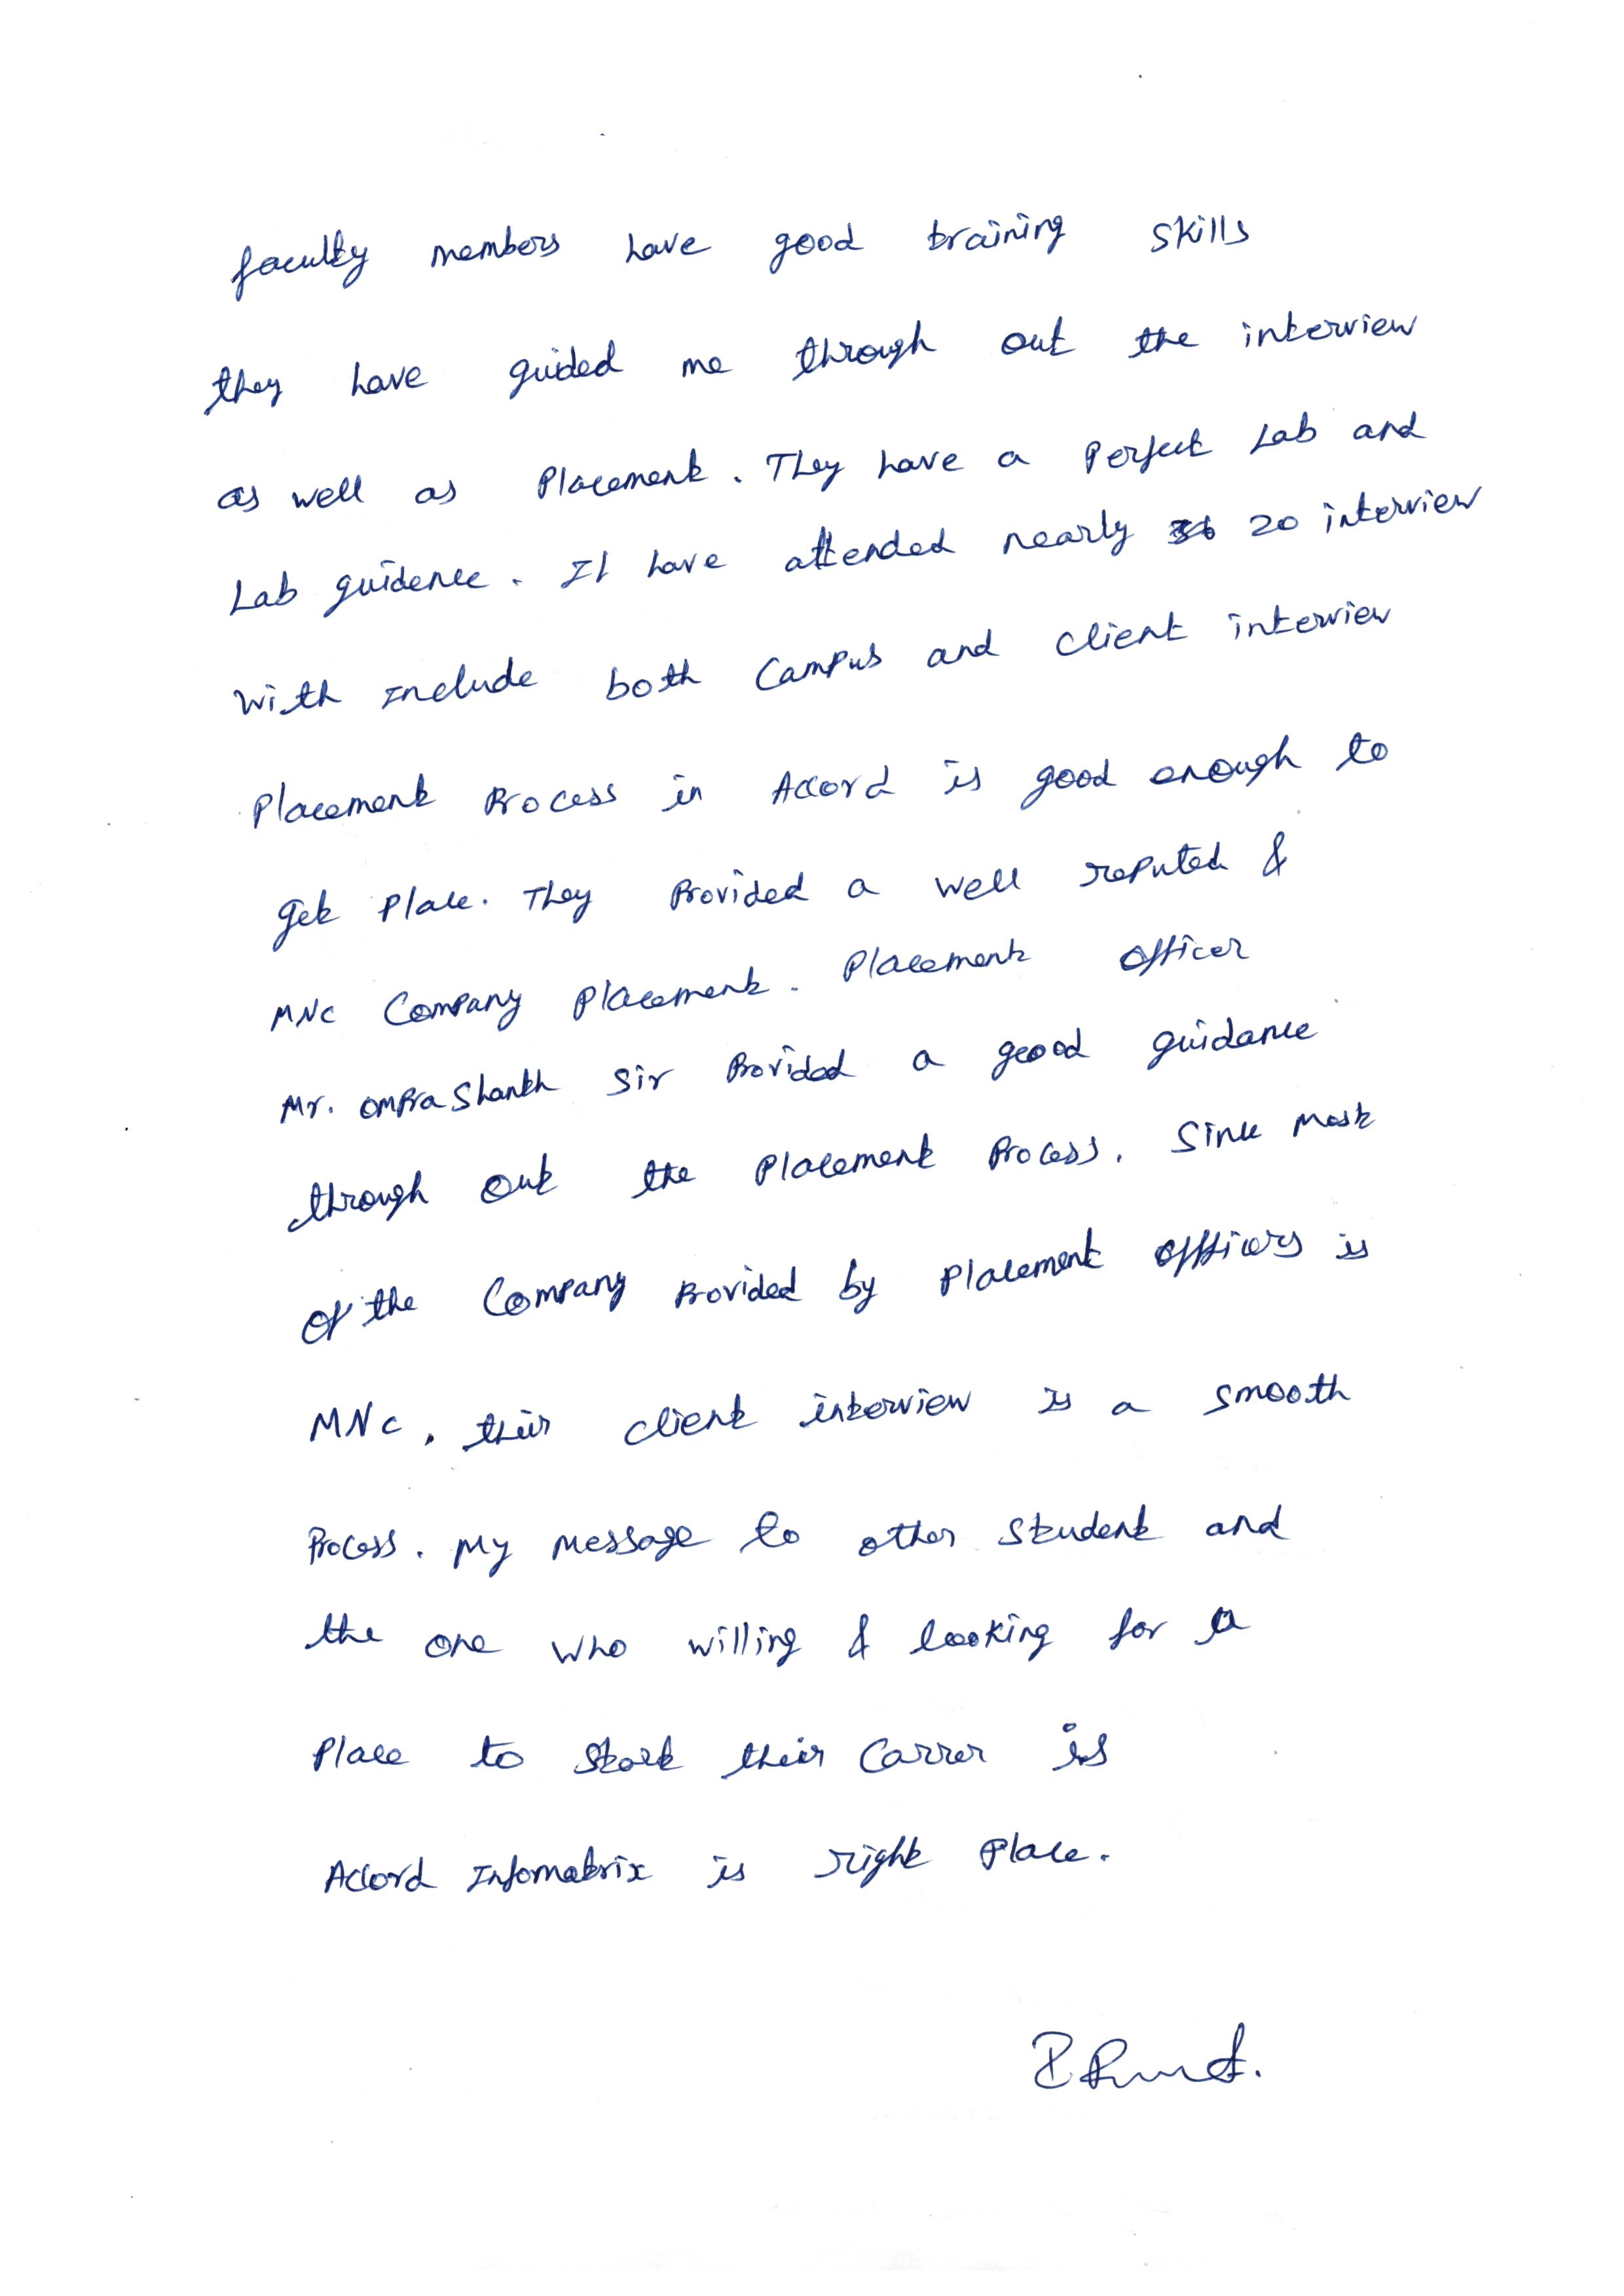 faculty members have good training skills
they have guided me through out the interview
as well as Placement. They have a Perfect Lab and
Lab guidence. I have attended nearly 20 interview
with include both Campus and client interview
Placement Process in Accord is good enough to
get Place. They Provided a well reputed &
MNC Company Placement. Placement Officer
Mr. OmPraShanth Sir Provided a good guidance
through out the Placement Process. Since most
of the Company Provided by Placement officers is
MNC. their client interview is a smooth
Process. My message to other Student and
the one who willing & looking for a
Place to Start their Carrer is
Accord Infomatrix is right Place.